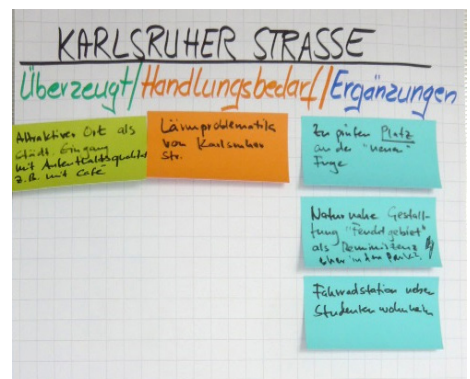 KARLSRUHER STRASSE
Überzeugt/Handlungsbedarf/Ergänzungen
Attraktiver Ort als
städt. Eingang
mit Aufenthaltsqualität
z.B. mit Café
Lärmproblematik
von Karlsruher
Str.
Zu prüfen Platz
an der "neuen"
Fuge
Naturnahe Gestal-
tung "Feuchtgebiet"
als Reminiszenz
eher in den
Fahrradstation neben
Studentenwohnheim